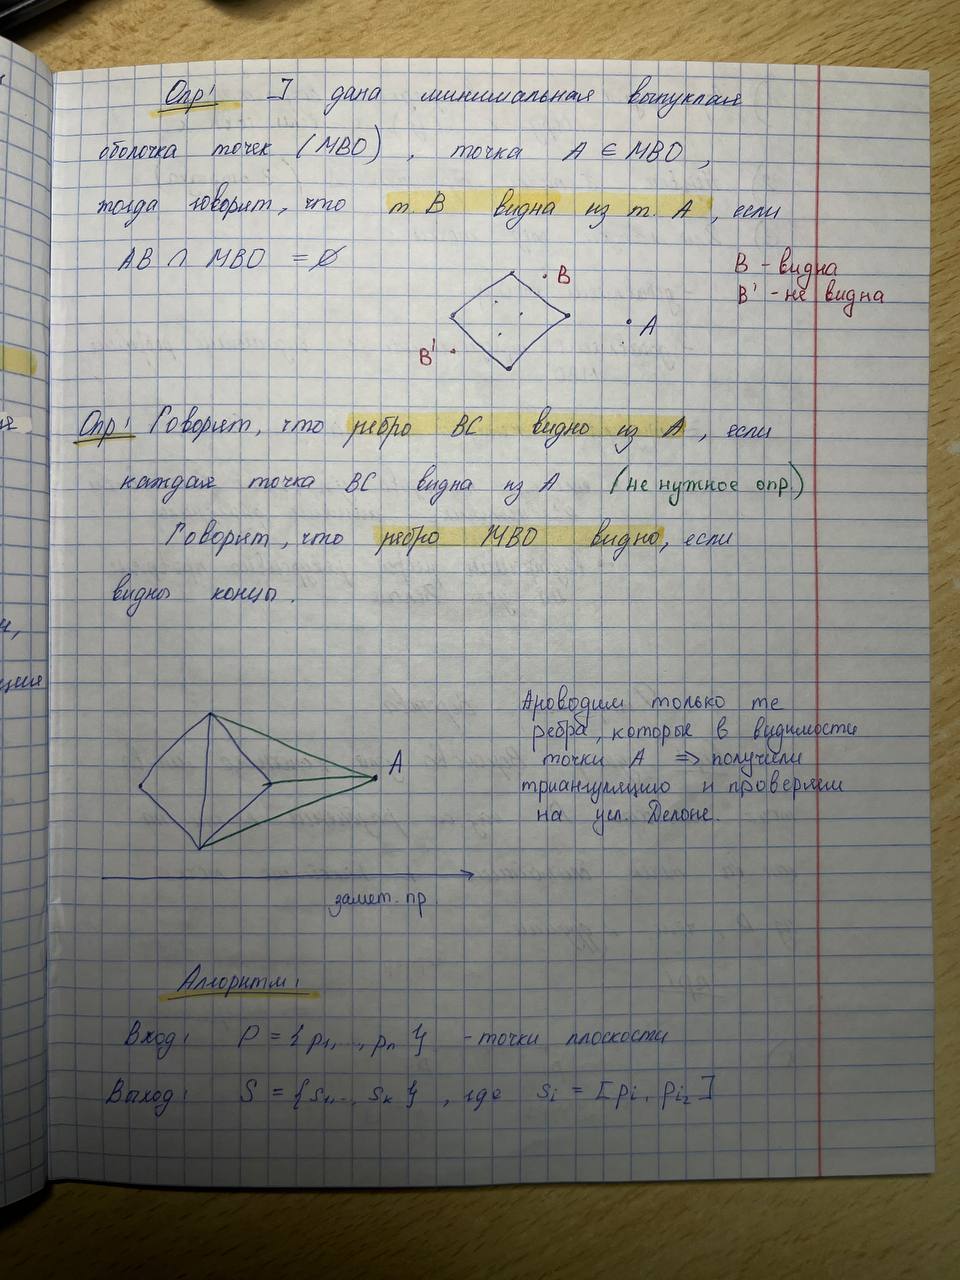 Опр! ] дана минимальная выпуклая
оболочка точек (МВО), точка A ∈ МВО,
тогда говорят, что т. B видна из т. A, если
AB ∩ МВО = ∅
B
B - видна
B' - не видна
A
B'
Опр! Говорят, что ребро BC видно из A, если
каждая точка BC видна из A (не нужное опр.)
Говорят, что ребро МВО видно, если
видны концы.
Проводим только те
ребра, которые в видимости
точки A => получили
триангуляцию и проверяем
на усл. Делоне.
A
замет. пр.
Алгоритм:
Вход: P = {p₁,..., pₙ} - точки плоскости
Выход: S = {s₁,.., sₖ}, где sᵢ = [pᵢ, pᵢ₂]